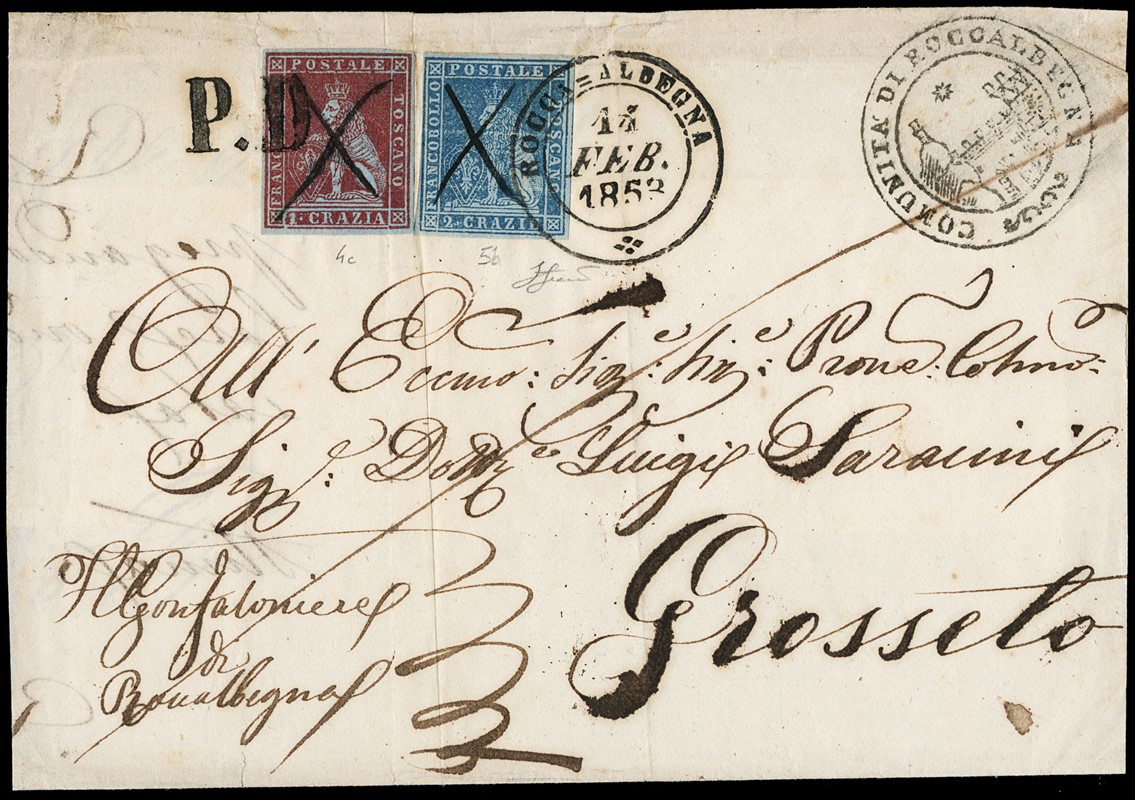 P.D
FRANCOBOLLO POSTALE TOSCANO
1. CRAZIA
FRANCOBOLLO POSTALE TOSCANO
2. CRAZIE
ROCCA=ALBEGNA
14
FEB.
1853
COMUNITA DI ROCCALBEGNA
4c
5b
All' Eccmo: Sigre: Sige: Prone: Colmo:
Sigre: Dottre Luigi Saracini
Grosseto
Il Gonfaloniere
di
Roccalbegna